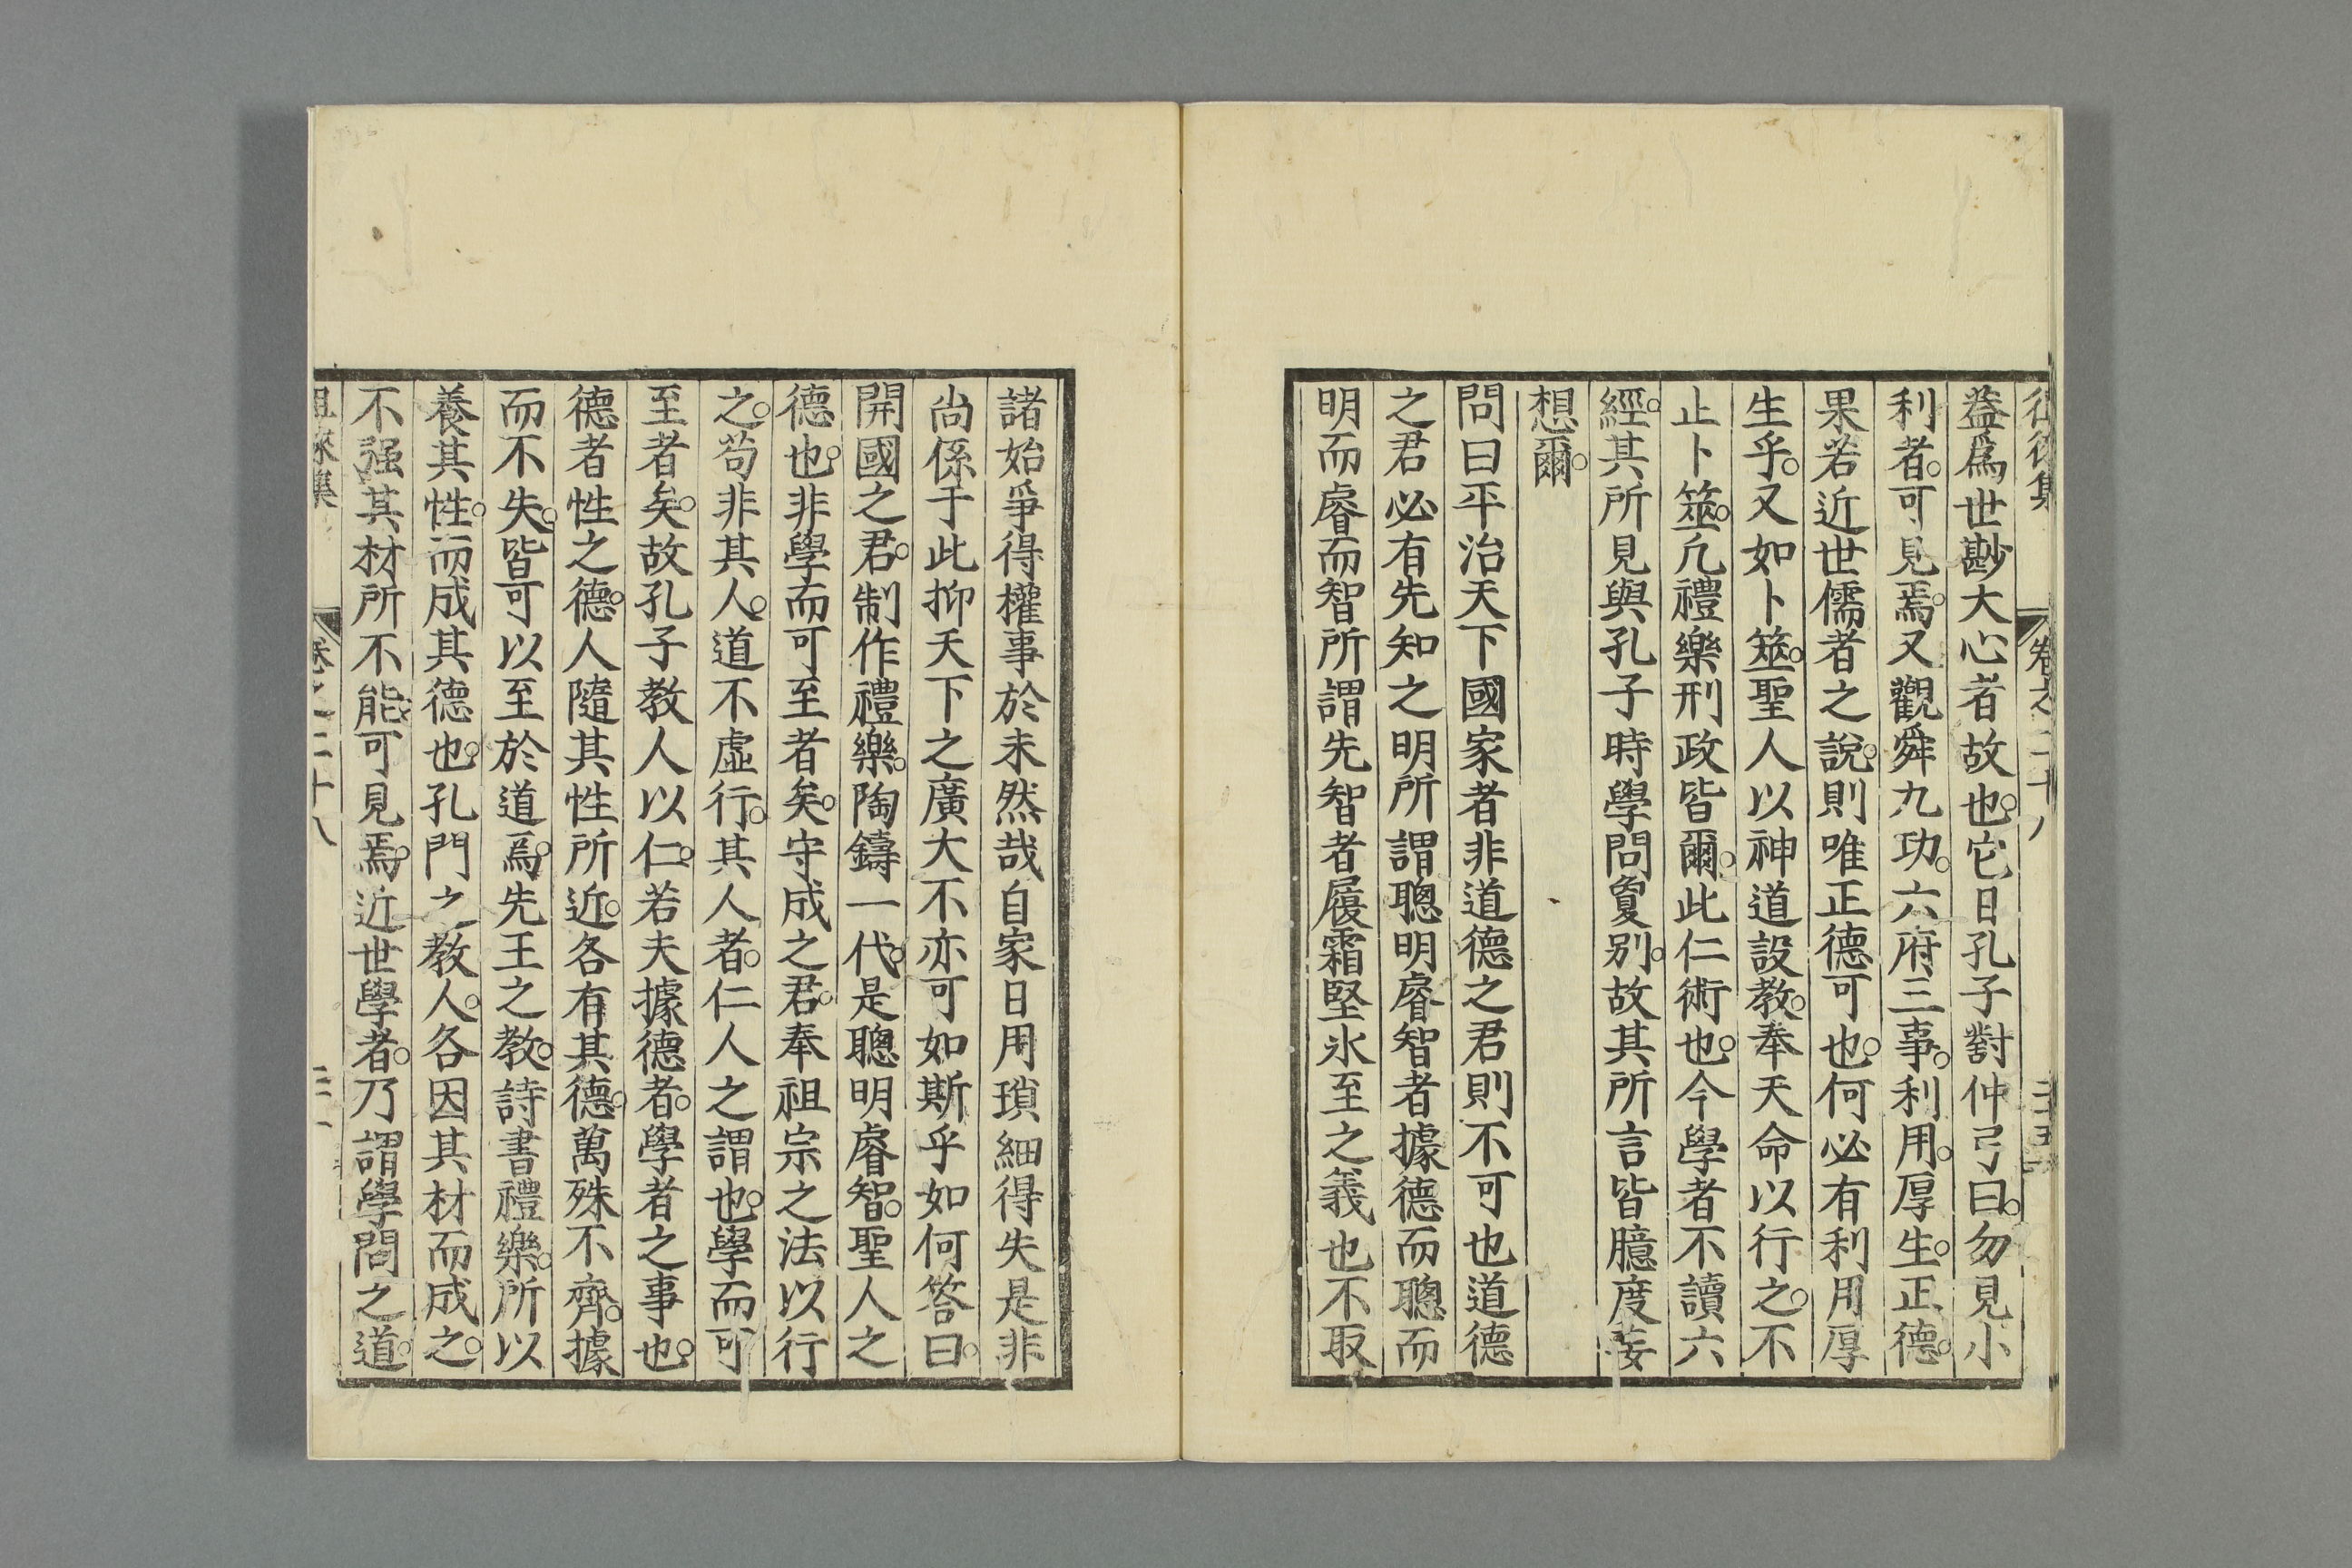 徂徠集 卷之二十八
葢爲世尠大心者故也。它日孔子對仲弓曰。勿見小
利者。可見焉。又觀舜九功。六府三事。利用。厚生。正德。
果若近世儒者之說。則唯正德可也。何必有利用厚
生乎。又如卜筮。聖人以神道設教。奉天命以行之。不
止卜筮。凢禮樂刑政皆爾。此仁術也。今學者不讀六
經。其所見與孔子時學問夐别。故其所言皆臆度妄
想爾。
問曰平治天下國家者非道德之君則不可也道德
之君必有先知之明所謂聰明睿智者據德而聰而
明而睿而智所謂先智者履霜堅氷至之義也不取
諸始爭得權事於未然哉自家日用瑣細得失是非
尚係于此抑天下之廣大不亦可如斯乎如何答曰。
開國之君。制作禮樂。陶鑄一代。是聰明睿智。聖人之
德也。非學而可至者矣。守成之君。奉祖宗之法以行
之。苟非其人。道不虛行。其人者。仁人之謂也。學而可
至者矣。故孔子教人以仁。若夫據德者。學者之事也。
德者性之德。人隨其性所近。各有其德。萬殊不齊。據
而不失。皆可以至於道焉。先王之教。詩書禮樂。所以
養其性。而成其德也。孔門之教人。各因其材而成之。
不强其材所不能。可見焉。近世學者。乃謂學問之道。
徂徠集 卷之二十八